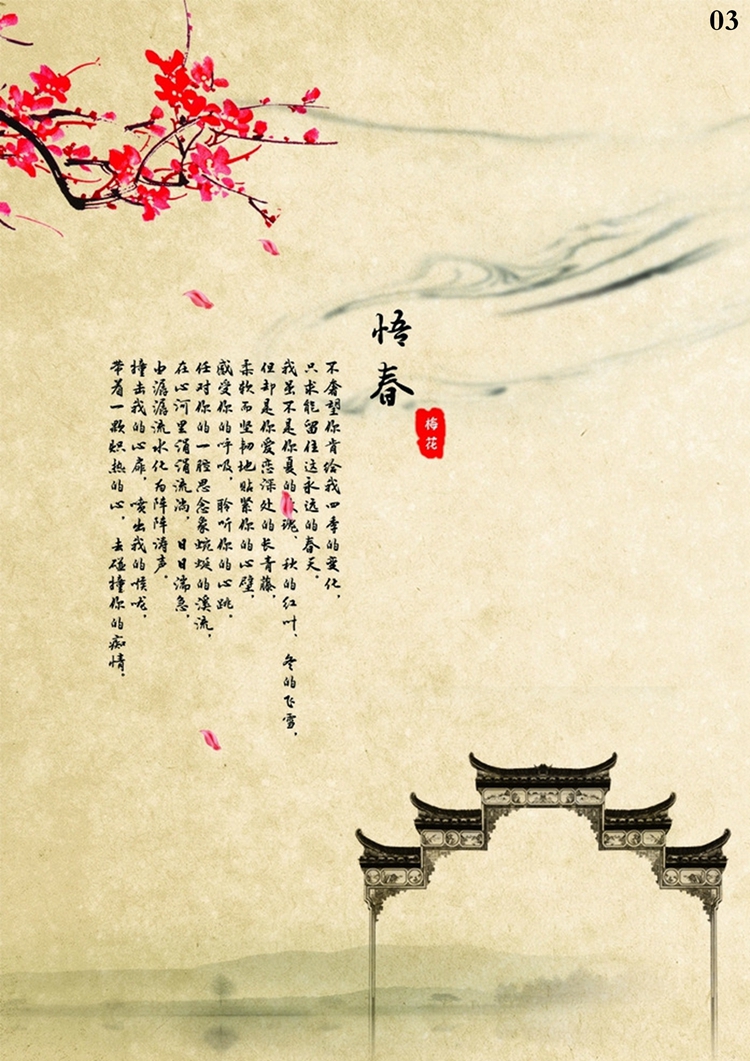 03
悟春
梅花
不奢望你肯给我四季的变化,
只求能留住这永远的春天。
我虽不是你夏的玫瑰、秋的红叶、冬的飞雪,
但却是你爱恋深处的长青藤,
柔软而坚韧地贴紧你的心壁,
感受你的呼吸,聆听你的心跳,
任对你的一腔思念象蜿蜒的溪流,
在心河里涓涓流淌,日日湍急,
由潺潺流水化为阵阵涛声。
撞击我的心扉,喷出我的喉咙,
带着一颗炽热的心,去碰撞你的痴情。